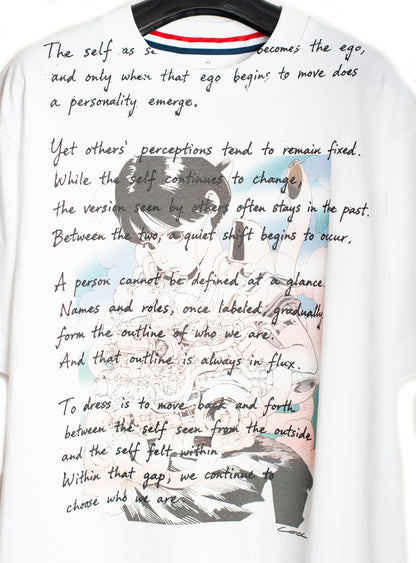 The self as se becomes the ego,
and only when that ego begins to move does
a personality emerge.
Yet others' perceptions tend to remain fixed.
While the self continues to change,
the version seen by others often stays in the past.
Between the two, a quiet shift begins to occur.
A person cannot be defined at a glance.
Names and roles, once labeled, gradually
form the outline of who we are.
And that outline is always in flux.
To dress is to move back and forth
between the self seen from the outside
and the self felt within.
Within that gap, we continue to
choose who we are